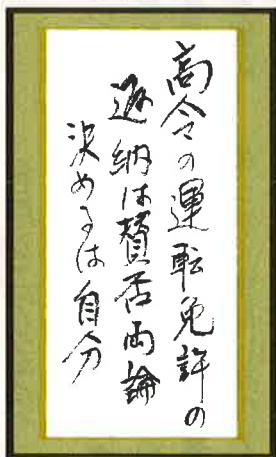 高令の運転免許の
返納は賛否両論
決めるは自分